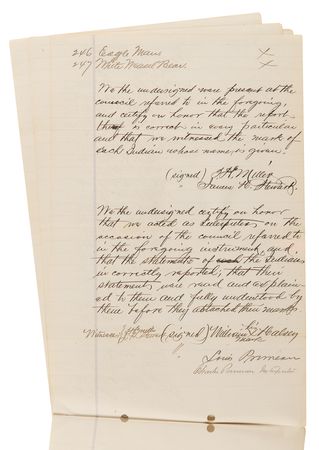 246 Eagle Man X
247 White Maned Bear X
We the undersigned were present at the
council referred to in the foregoing,
and certify on honor that the report
is correct in every particular
and that we witnessed the mark of
each Indian whose name is given.
(signed) J.H. Miller
" James H.
We the undersigned certify on honor
that we acted as interpreters on the
occasion of the council referred to
in the foregoing instrument, and
that the statements of the Indians
is correctly reported; that their
statements were read and explain-
ed to them and fully understood by
them before they attached their marks.
Witness (signed) William X Halsey
mark
Louis Primeau
Charles Primeau Interpreter